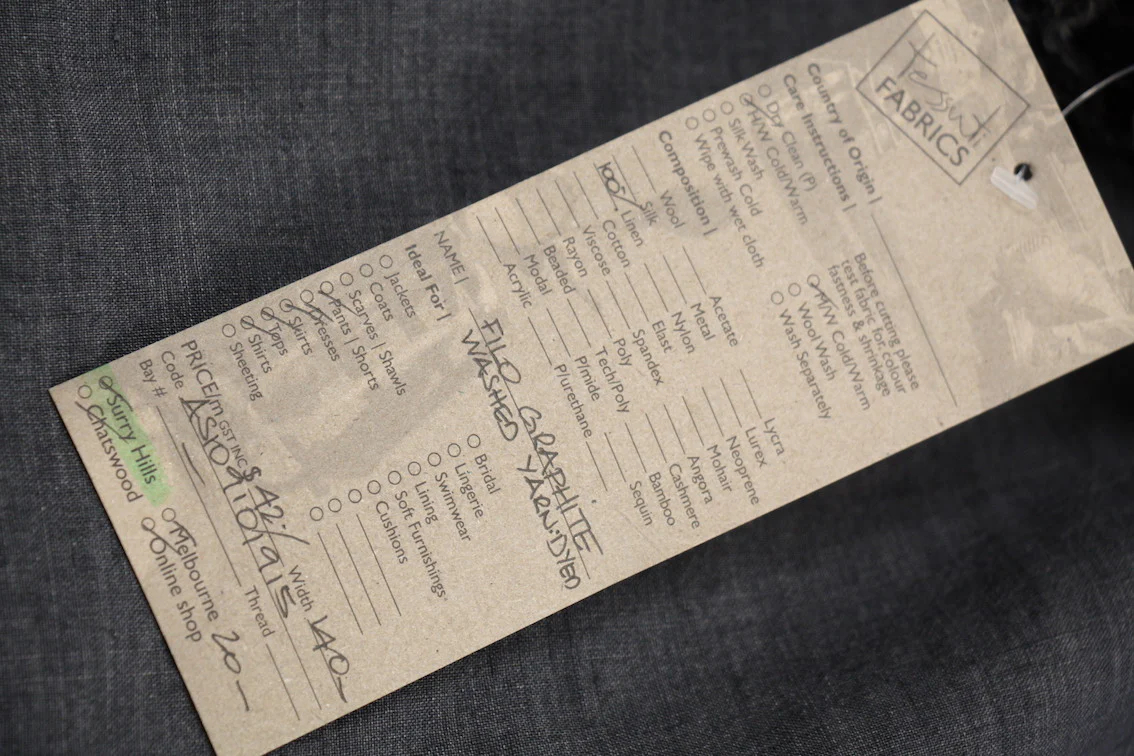 Tessuti
FABRICS
Country of Origin |
Care Instructions |
Dry Clean (P)
H/W Cold/Warm
Silk Wash
Prewash Cold
Wipe with wet cloth
Before cutting please
test fabric for colour
fastness & shrinkage
H/W Cold/Warm
Wool Wash
Wash Separately
Composition |
Wool
Silk
100% Linen
Cotton
Viscose
Rayon
Beaded
Modal
Acrylic
Acetate
Metal
Nylon
Elast
Spandex
Poly
Tech/Poly
P/mide
P/urethane
Lycra
Lurex
Neoprene
Mohair
Angora
Cashmere
Bamboo
Sequin
NAME |
FILO GRAPHITE
WASHED YARN-DYED
Ideal For |
Jackets
Coats
Scarves | Shawls
Pants | Shorts
Dresses
Skirts
Tops
Shirts
Sheeting
Bridal
Lingerie
Swimwear
Lining
Soft Furnishings
Cushions
PRICE/m GST INC $42/ Width 140
Code
Bay #
Thread
Surry Hills
Chatswood
Melbourne 20
Online shop